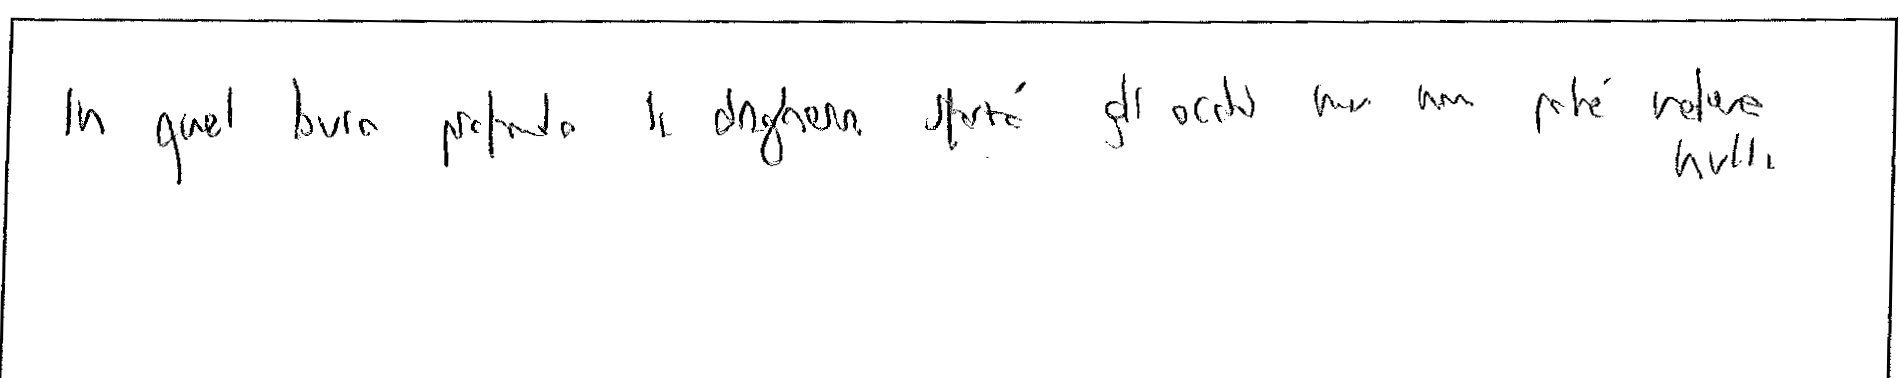 In quel buio profondo la ringhiera sforzò gli occhi ma non poté vedere
nulla